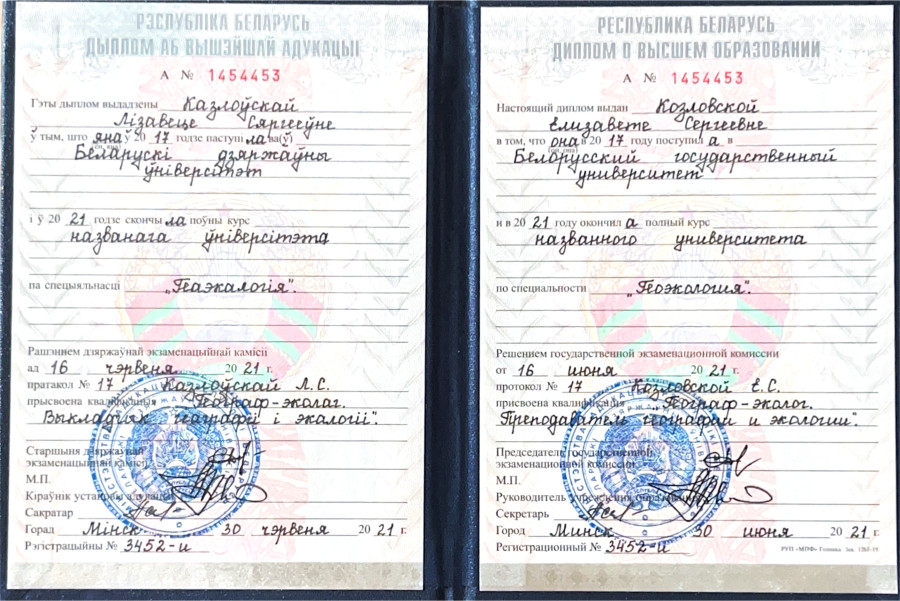 РЭСПУБЛІКА БЕЛАРУСЬ
ДЫПЛОМ АБ ВЫШЭЙШАЙ АДУКАЦЫІ
А № 1454453
Гэты дыплом выдадзены Казлоўскай
Лізавеце Сяргееўне
ў тым, што яна ў 20 17 годзе паступі ла ва(ў)
Беларускі дзяржаўны
ўніверсітэт
і ў 20 21 годзе скончы ла поўны курс
названага ўніверсітэта
па спецыяльнасці „Геаэкалогія".
Рашэннем дзяржаўнай экзаменацыйнай камісіі
ад 16 чэрвеня 20 21 г.
пратакол № 17 Казлоўскай Л.С.
прысвоена кваліфікацыя „Географ-эколаг.
Выкладчык геаграфіі і экалогіі".
Старшыня дзяржаўнай
экзаменацыйнай камісіі
М.П.
Кіраўнік установы адукацыі
Сакратар
Горад Мінск 30 чэрвеня 20 21 г.
Рэгістрацыйны № 3452-и
РЕСПУБЛИКА БЕЛАРУСЬ
ДИПЛОМ О ВЫСШЕМ ОБРАЗОВАНИИ
А № 1454453
Настоящий диплом выдан Козловской
Елизавете Сергеевне
в том, что она в 20 17 году поступил а в
(он, она)
Белорусский государственный
университет
и в 20 21 году окончил а полный курс
названного университета
по специальности „Геоэкология".
Решением государственной экзаменационной комиссии
от 16 июня 20 21 г.
протокол № 17 Козловской Е.С.
присвоена квалификация „Географ-эколог.
Преподаватель географии и экологии".
Председатель государственной
экзаменационной комиссии
М.П.
Руководитель учреждения образования
Секретарь
Город Минск 30 июня 20 21 г.
Регистрационный № 3452-и